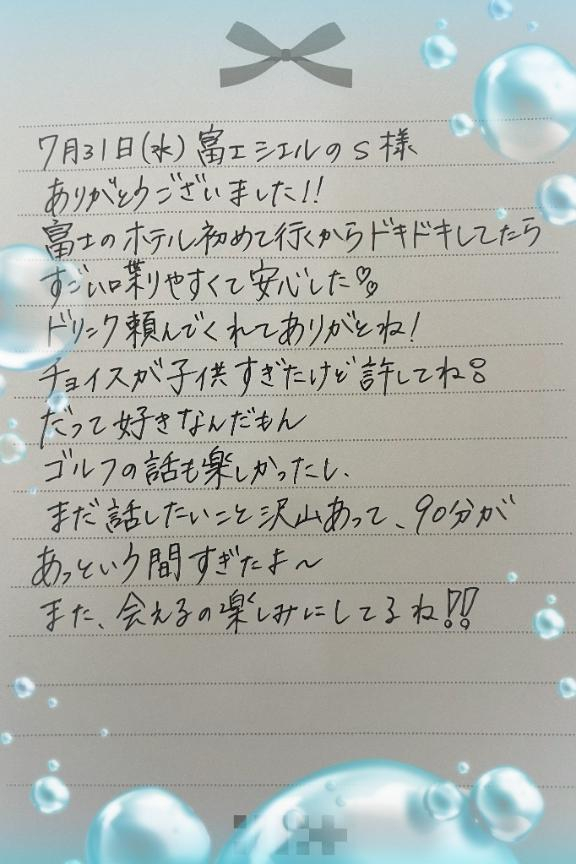 7月31日(水) 富士シエルのS様
ありがとうございました!!
富士のホテル初めて行くからドキドキしてたら
すごい喋りやすくて安心した♡♡
ドリンク頼んでくれてありがとね!
チョイスが子供すぎたけど許してね
だって好きなんだもん
ゴルフの話も楽しかったし、
まだ話したいこと沢山あって、90分が
あっという間すぎたよ〜
また、会えるの楽しみにしてるね!!